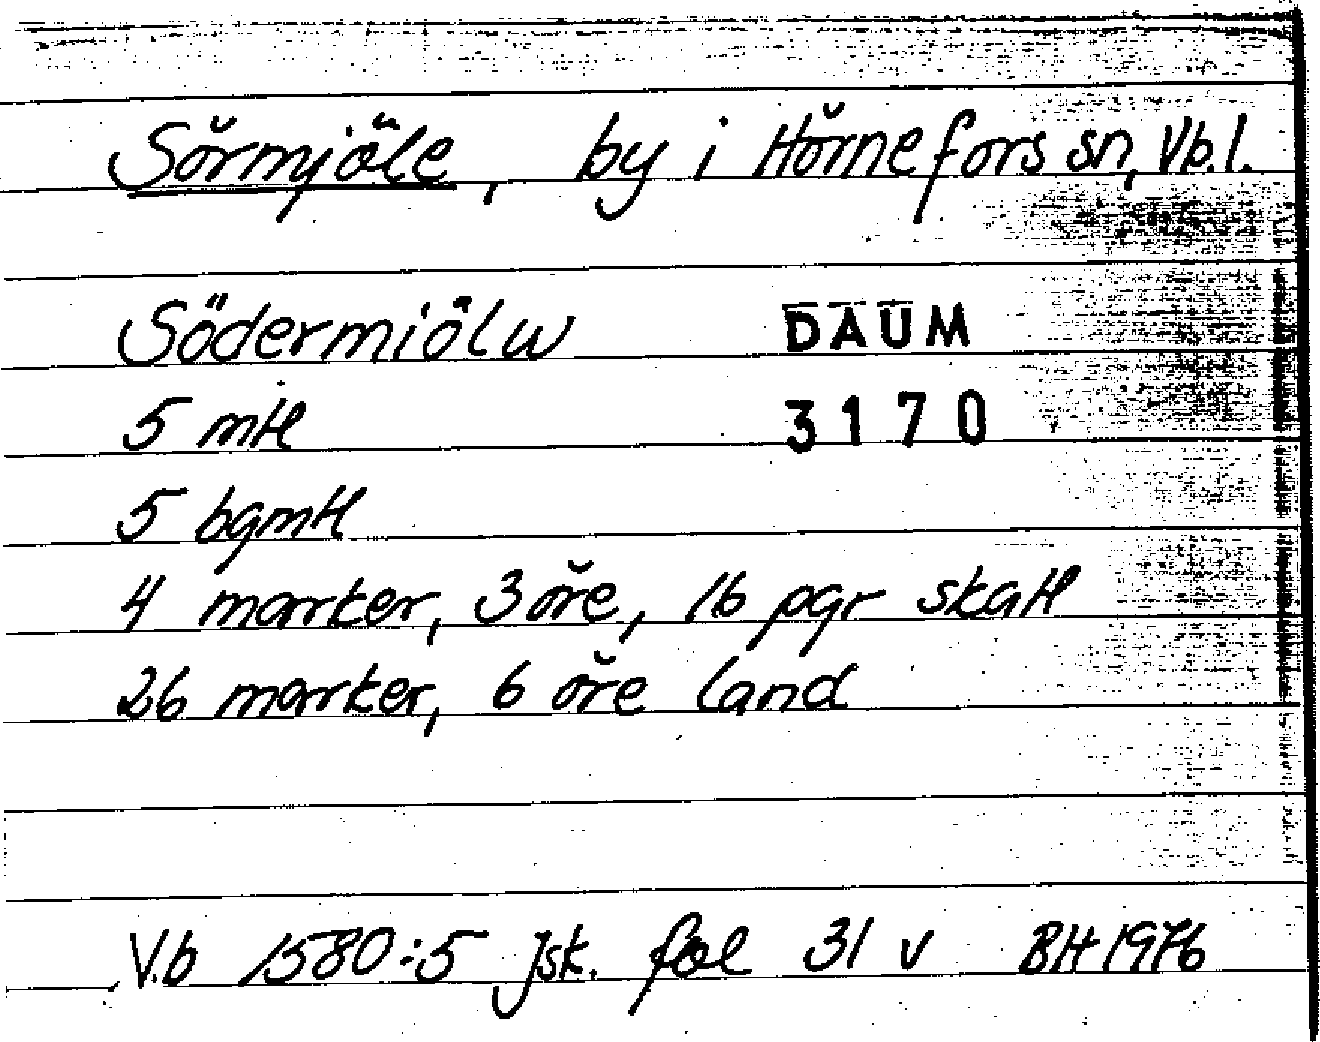 Sörmjöle, by i Hörnefors sn, Vb.l.
Södermiölw DAUM
5 mtl 3170
5 bgmtl
4 marker, 3 öre, 16 pgr skatt
26 marker, 6 öre land
V.b 1580:5 Jsk. fol 31 v BH 1976